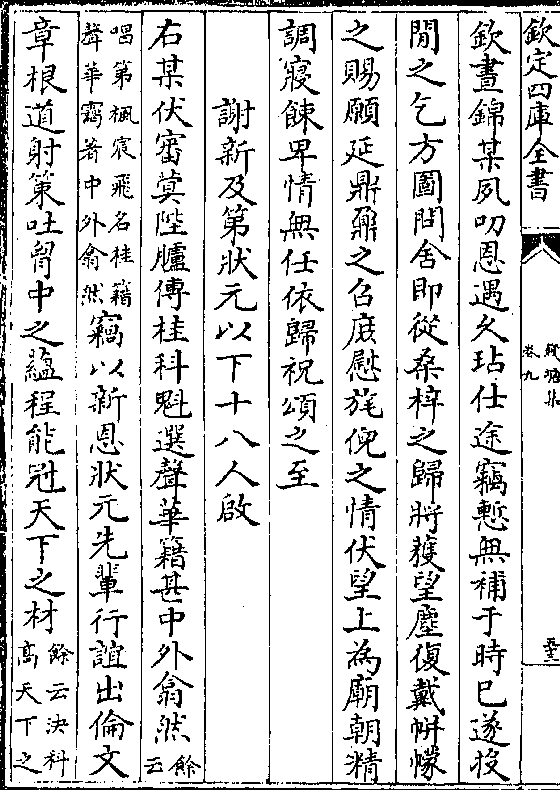 欽定四庫全書
錢塘集
卷九
欽晝錦某夙叨恩遇久玷仕途竊慙無補于時已遂投
閒之乞方圖問舍即從桑梓之歸將獲望塵復戴帡幪
之賜願延鼎鼐之召庶慰旄倪之情伏望上為廟朝精
調寢餗卑情無任依歸祝頌之至
謝新及第狀元以下十八人啟
右某伏審蓂陛臚傳桂科魁選聲華籍甚中外翕然餘云
唱第楓宸飛名桂籍
聲華籍著中外翕然竊以新恩狀元先輩行誼出倫文
章根道射策吐胷中之蘊程能冠天下之材餘云決科
高天下之